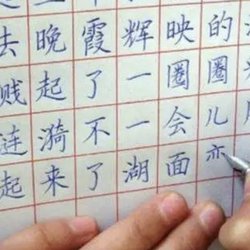 去晚霞辉映的
溅起了一圈圈
涟漪不一会儿
起来了湖面亦